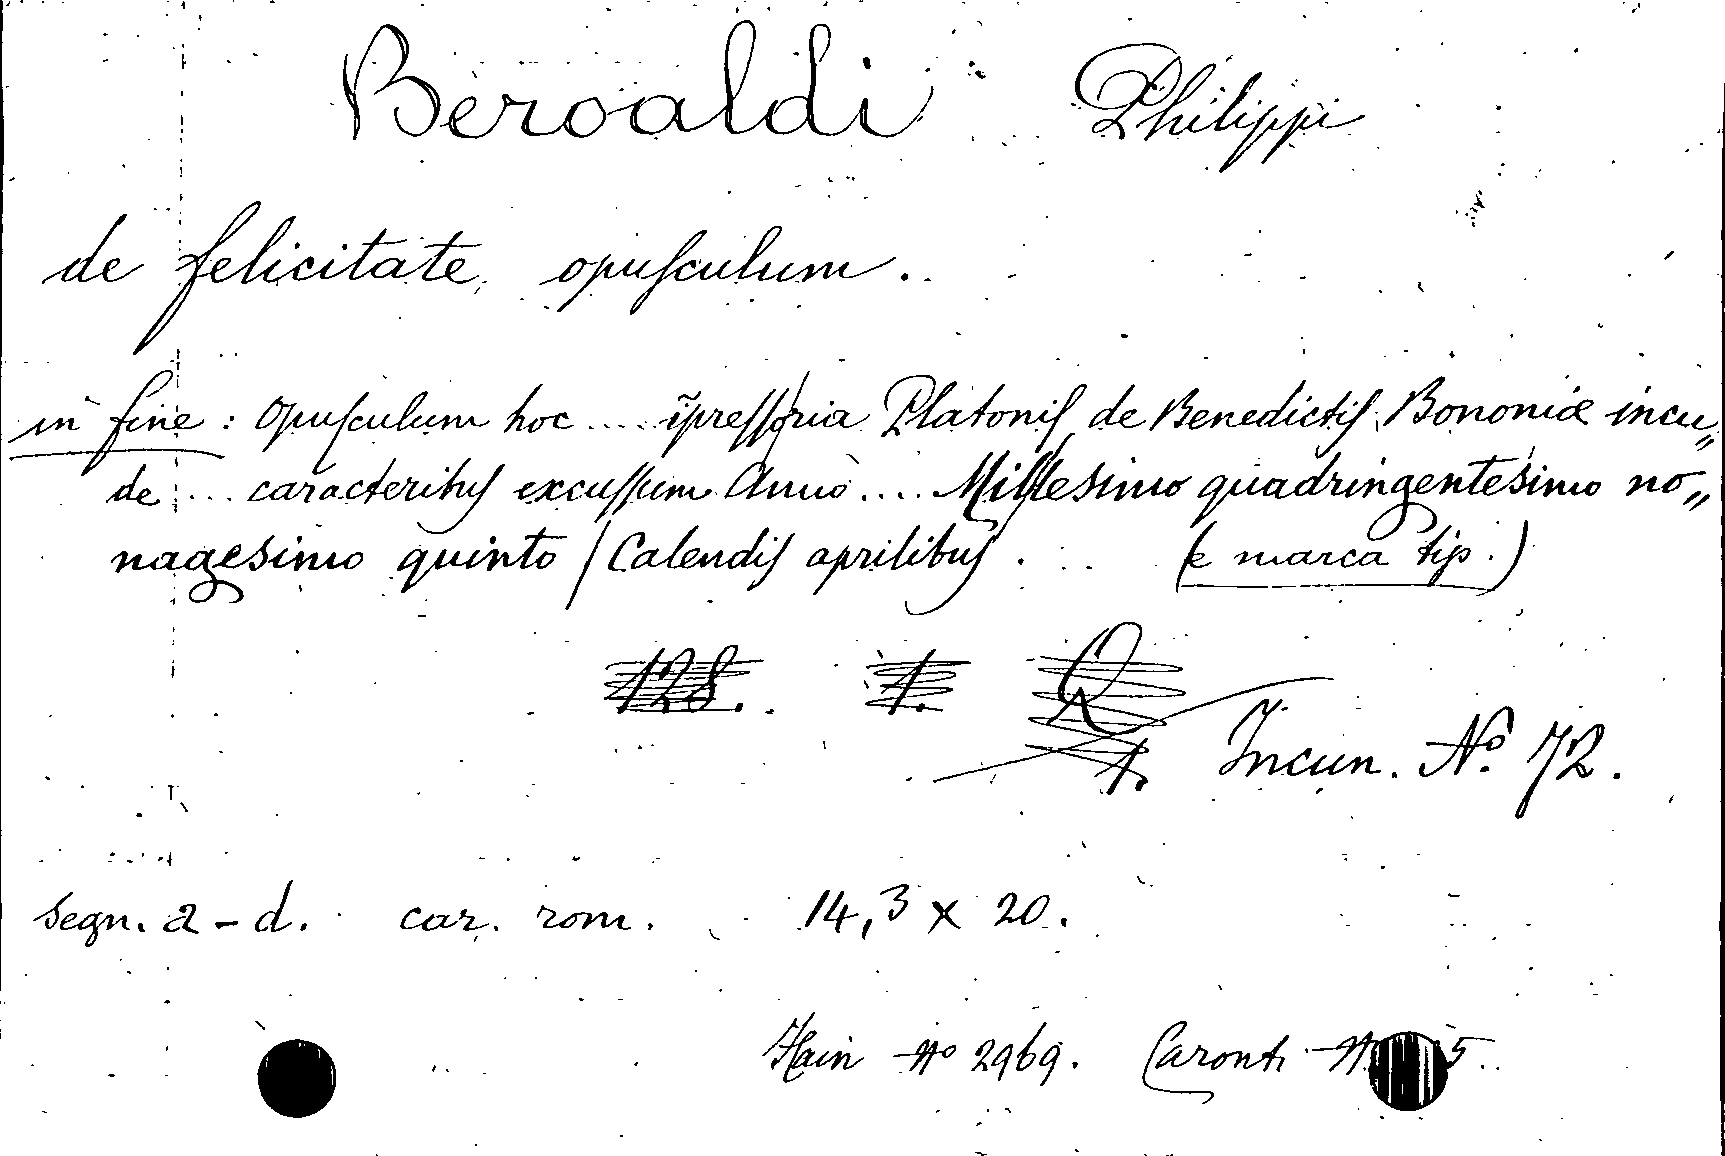 Beroaldi Philippi
de felicitate opusculum.
in fine: Opusculum hoc .... ĩpressoria Platonis de Benedictis Bononiæ incu„
de ... caracteribus excussum Anno .... Millesimo quadringentesimo no„
nagesimo quinto / Calendis aprilibus. (e marca tip.)
128. 1. Q
1. Incun. Nº 72.
segn. a-d. car. rom. 14,3 x 20.
Hain nº 2969. Caronti nº 5.